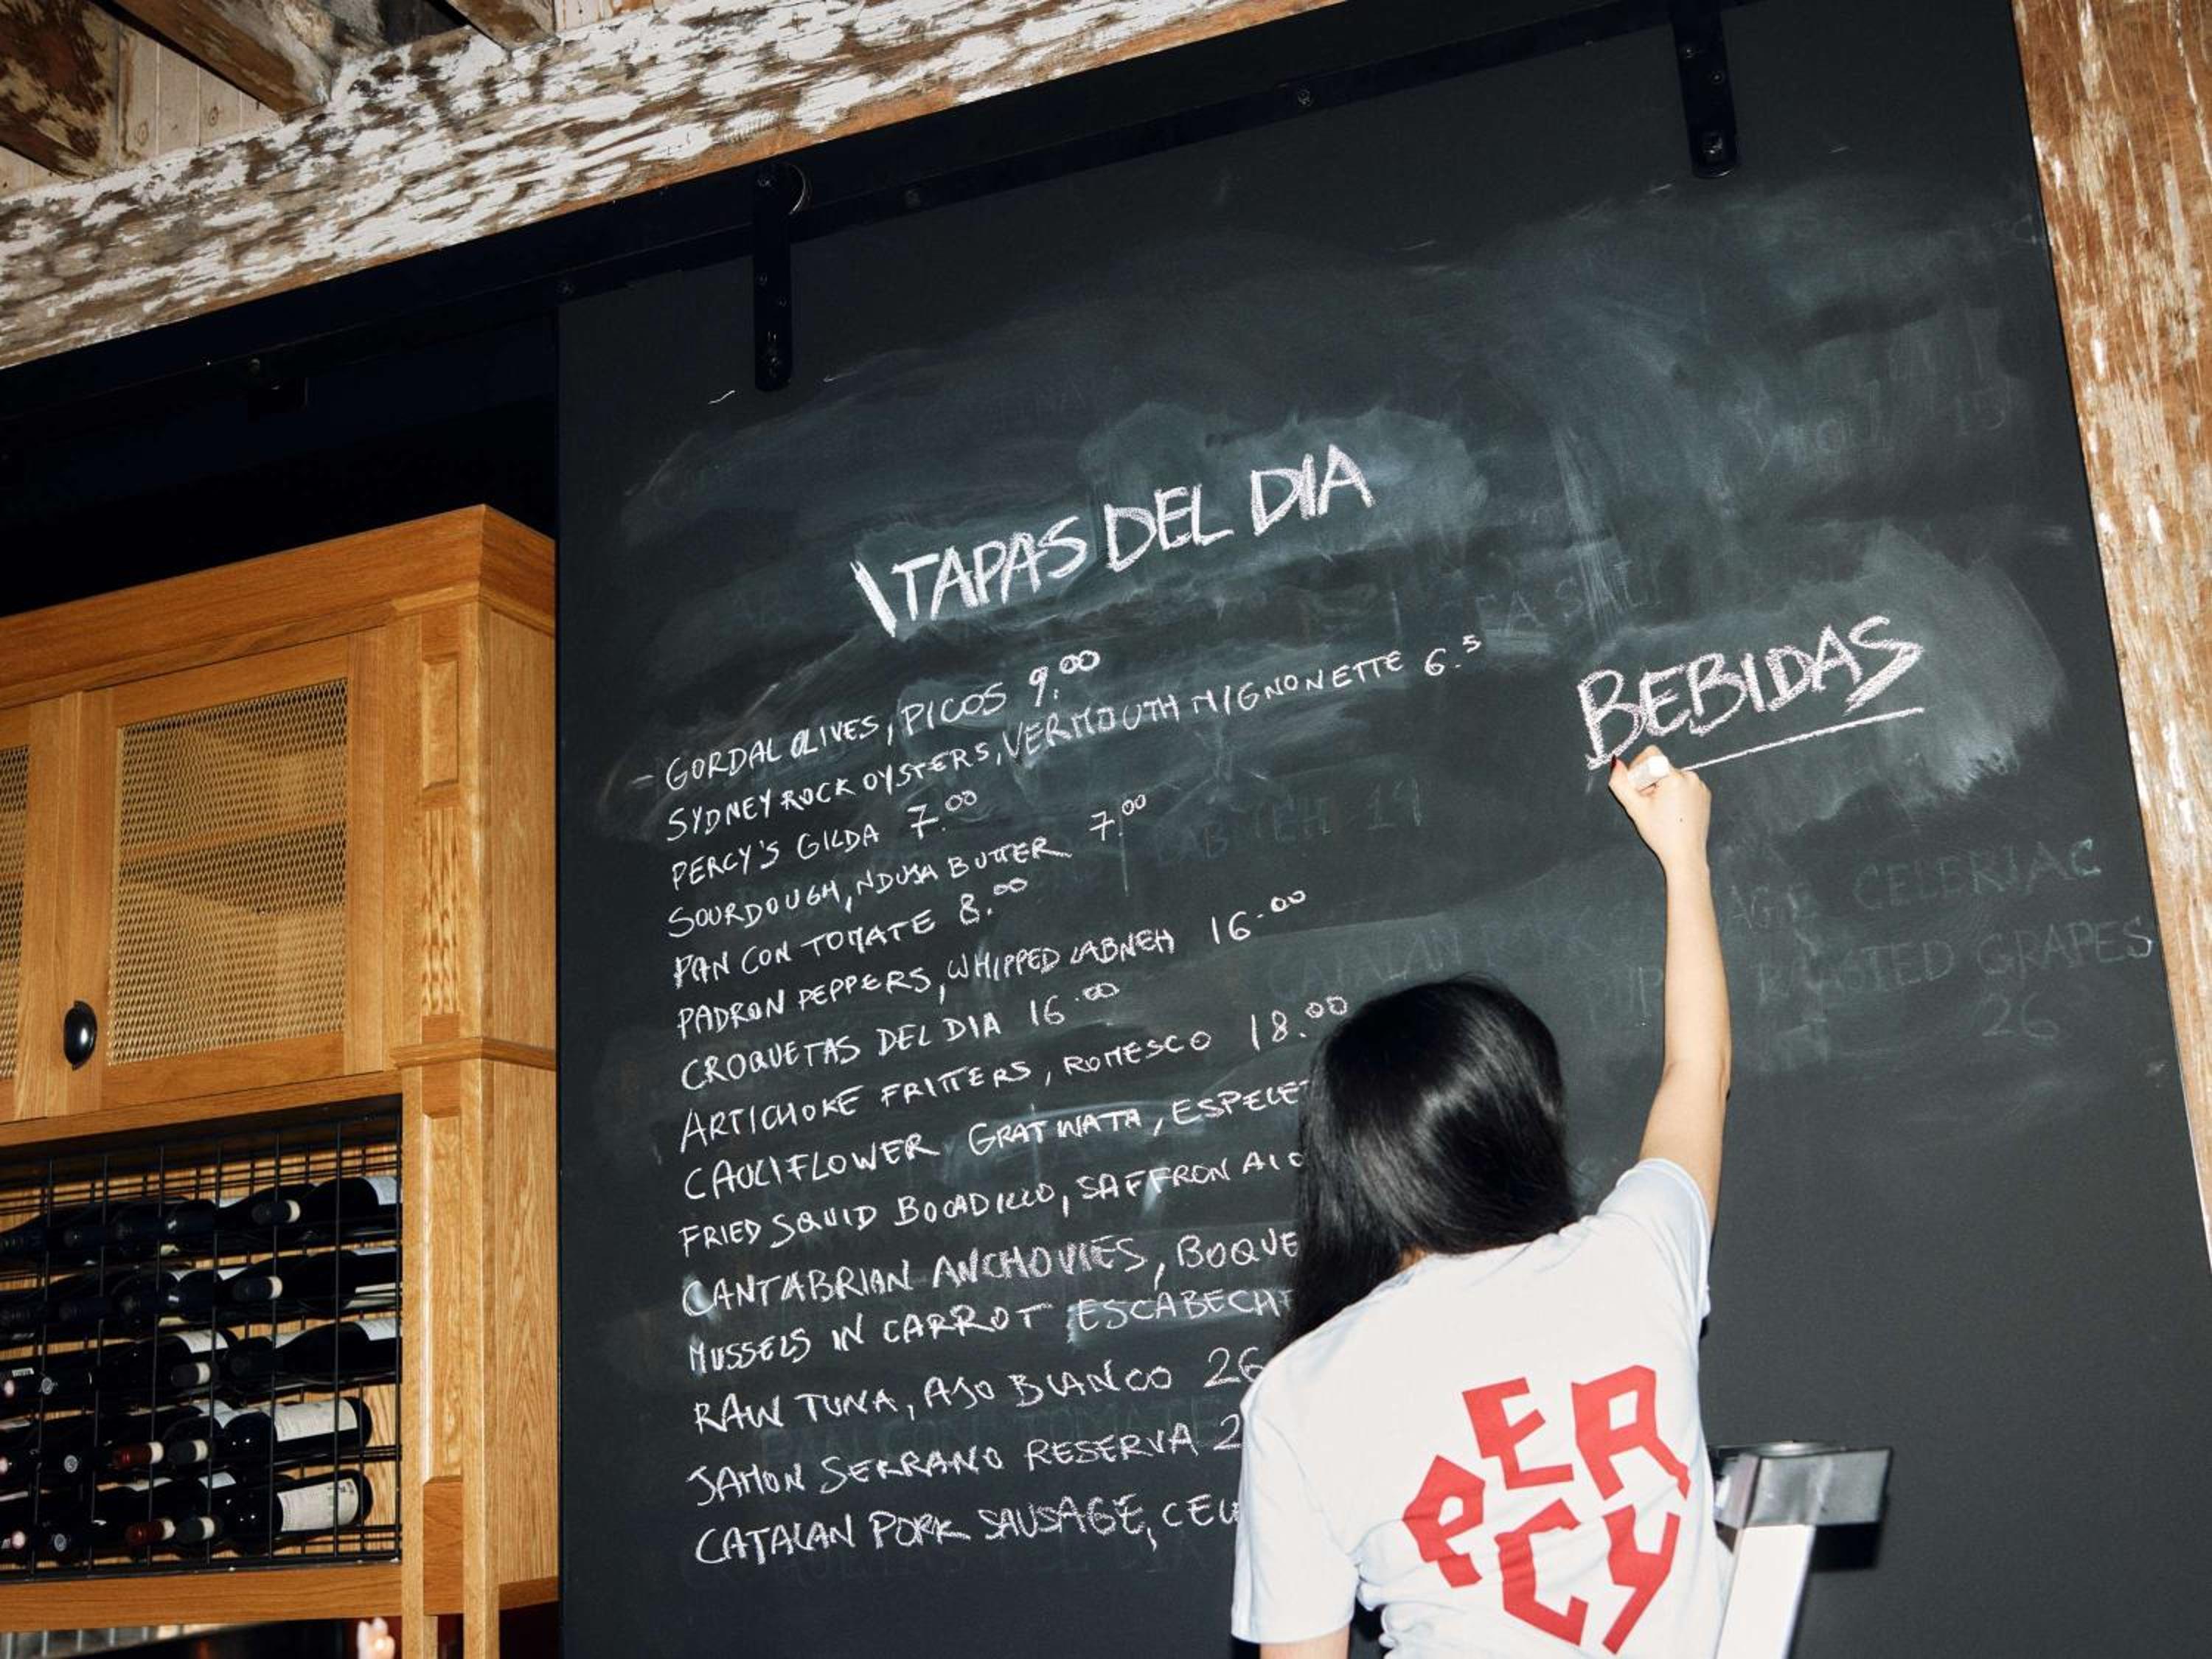 TAPAS DEL DIA
- GORDAL OLIVES, PICOS 9.00
SYDNEY ROCK OYSTERS, VERMOUTH MIGNONETTE 6.5
PERCY'S GILDA 7.00
SOURDOUGH, NDUJA BUTTER 7.00
PAN CON TOMATE 8.00
PADRON PEPPERS, WHIPPED LABNEH 16.00
CROQUETAS DEL DIA 16.00
ARTICHOKE FRITTERS, ROMESCO 18.00
CAULIFLOWER GRATINATA, ESPELE
FRIED SQUID BOCADILLO, SAFFRON AIO
CANTABRIAN ANCHOVIES, BOQUE
MUSSELS IN CARROT ESCABECH
RAW TUNA, AJO BLANCO 26
JAMON SERRANO RESERVA 2
CATALAN PORK SAUSAGE, CEL
BEBIDAS
CELERIAC
ROASTED GRAPES
26
PERCY